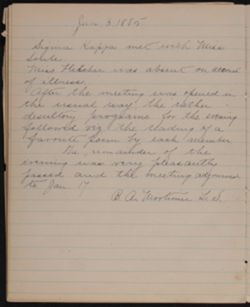 Jan. 3. 1885
Sigma Kappa met with Miss
Miss Fletcher was absent on account
of illness.
After the meeting was opened in
the usual way, the rather
desultory programe for the evening
followed viz. the reading of a
favorite poem by each member
The remainder of the
evening was very pleasantly
passed and the meeting adjourned
to Jan. 17.
B. A. Mortimer